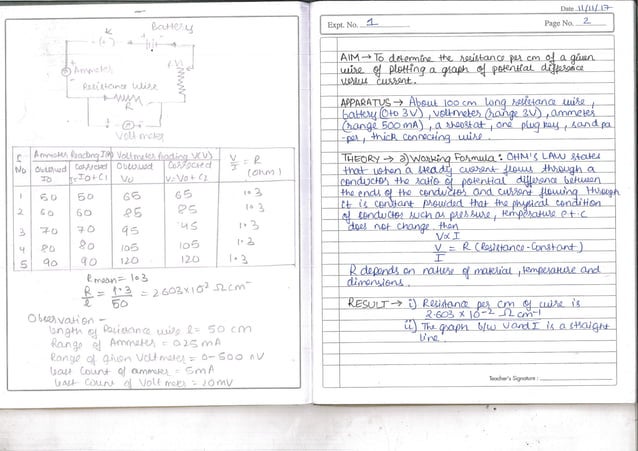 Battery
K
Ammeter
Rh
Resistance Wire
R
Voltmeter
S No
Ammeter Reading I(A)
Voltmeter Reading V(V)
V/I = R (ohm)
Observed I0
Corrected I=I0+C1
Observed V0
Corrected V=V0+C2
1 50 50 65 65 1.3
2 60 60 85 85 1.3
3 70 70 95 95 1.3
4 80 80 105 105 1.3
5 90 90 120 120 1.3
R mean = 1.3
R/l = 1.3/50 = 2.603×10² Ω cm⁻
Observation -
length of Resistance wire l = 50 cm
Range of Ammeter = 0
Range of given Voltmeter = 0-500 mV
least Count of ammeter = 5mA
least Count of Voltmeter = 10mV
Date 11/11/17
Expt. No. 1
Page No. 2
AIM → To determine the resistance per cm of a given
wire of plotting a graph of potential difference
versus current.
APPARATUS → About 100 cm long resistance wire,
battery (0 to 3V), voltmeter (range 3V), ammeter
(range 500 mA), a rheostat, one plug key, sand pa-
per, thick connecting wire.
THEORY → a) Working Formula: OHM'S LAW states
that when a steady current flows through a
conductor the ratio of potential difference between
the ends of the conductor and current flowing through
it is constant provided that the physical condition
of conductor such as pressure, temperature e.t.c
does not change then
V∝I
V/I = R (Resistance-Constant)
R depends on nature of material, temperature and
dimensions.
RESULT → i) Resistance per cm of wire is
2.603 × 10⁻² Ω cm⁻¹
ii) The graph b/w V and I is a straight
line.
Teacher's Signature :